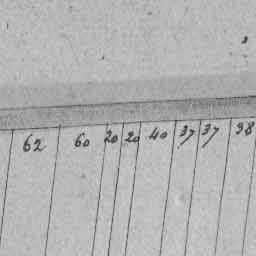 62 60 20 20 40 37 37 98